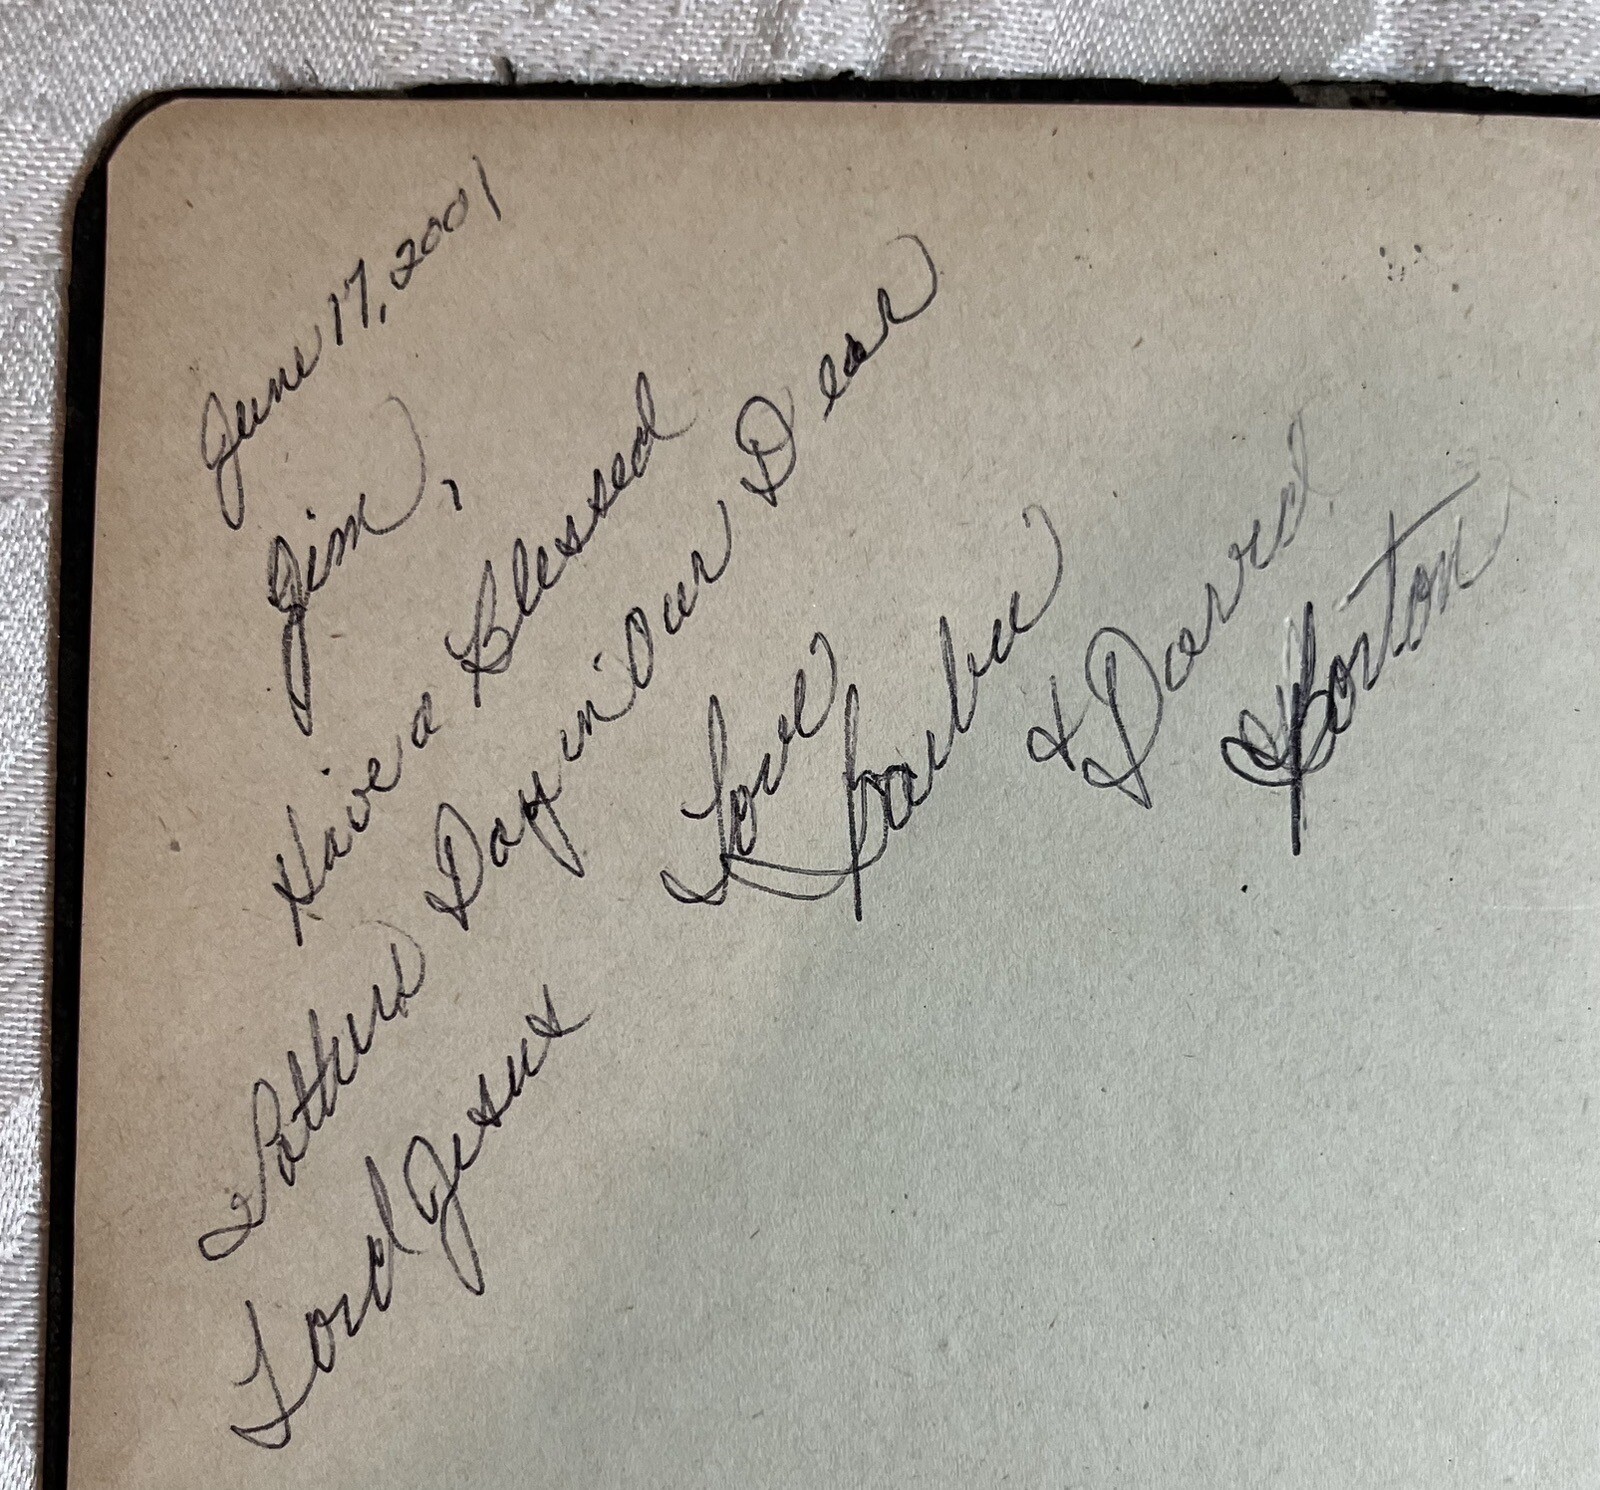 June 17, 2001
Jim,
Have a Blessed
Fathers Day in Our Dear
Lord Jesus
Love
Barba
& David
Horton